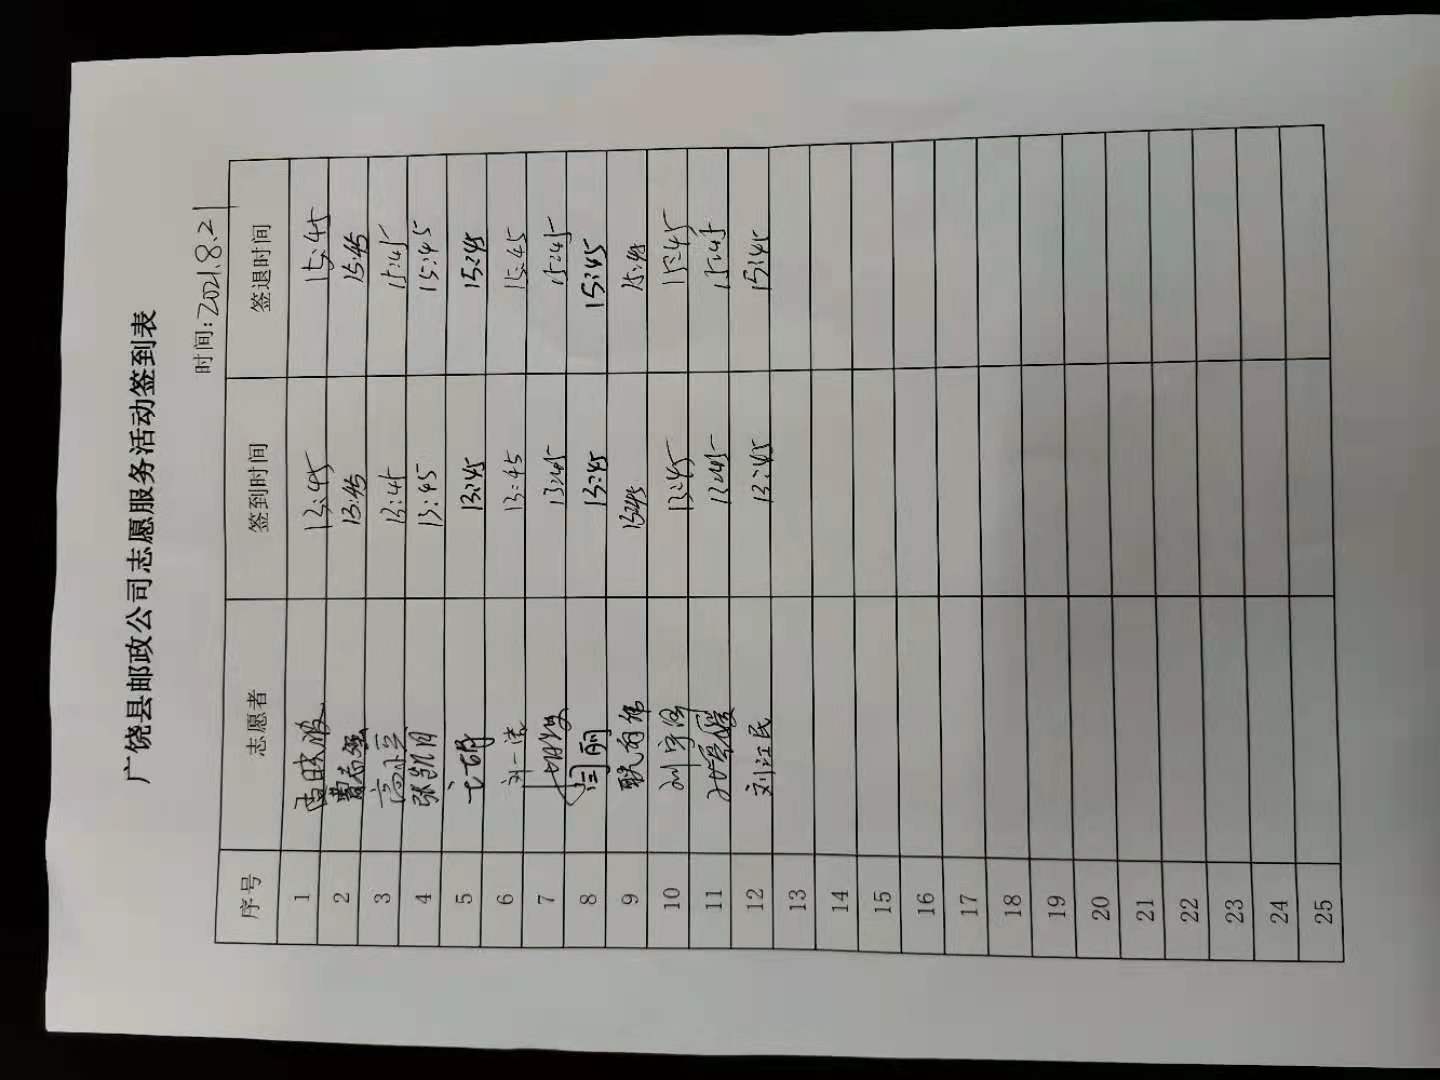 广饶县邮政公司志愿服务活动签到表
时间:2021.8.21
序号 志愿者 签到时间 签退时间
1 13:45 15:45
2 曹志强 13:45 15:45
3 13:45 15:45
4 张凯月 13:45 15:45
5 13:45 15:45
6 刘一 13:45 15:45
7 13:45 15:45
8 闫丽 13:45 15:45
9 13:45 15:45
10 刘 13:45 15:45
11 13:45 15:45
12 刘江民 13:45 15:45
13
14
15
16
17
18
19
20
21
22
23
24
25